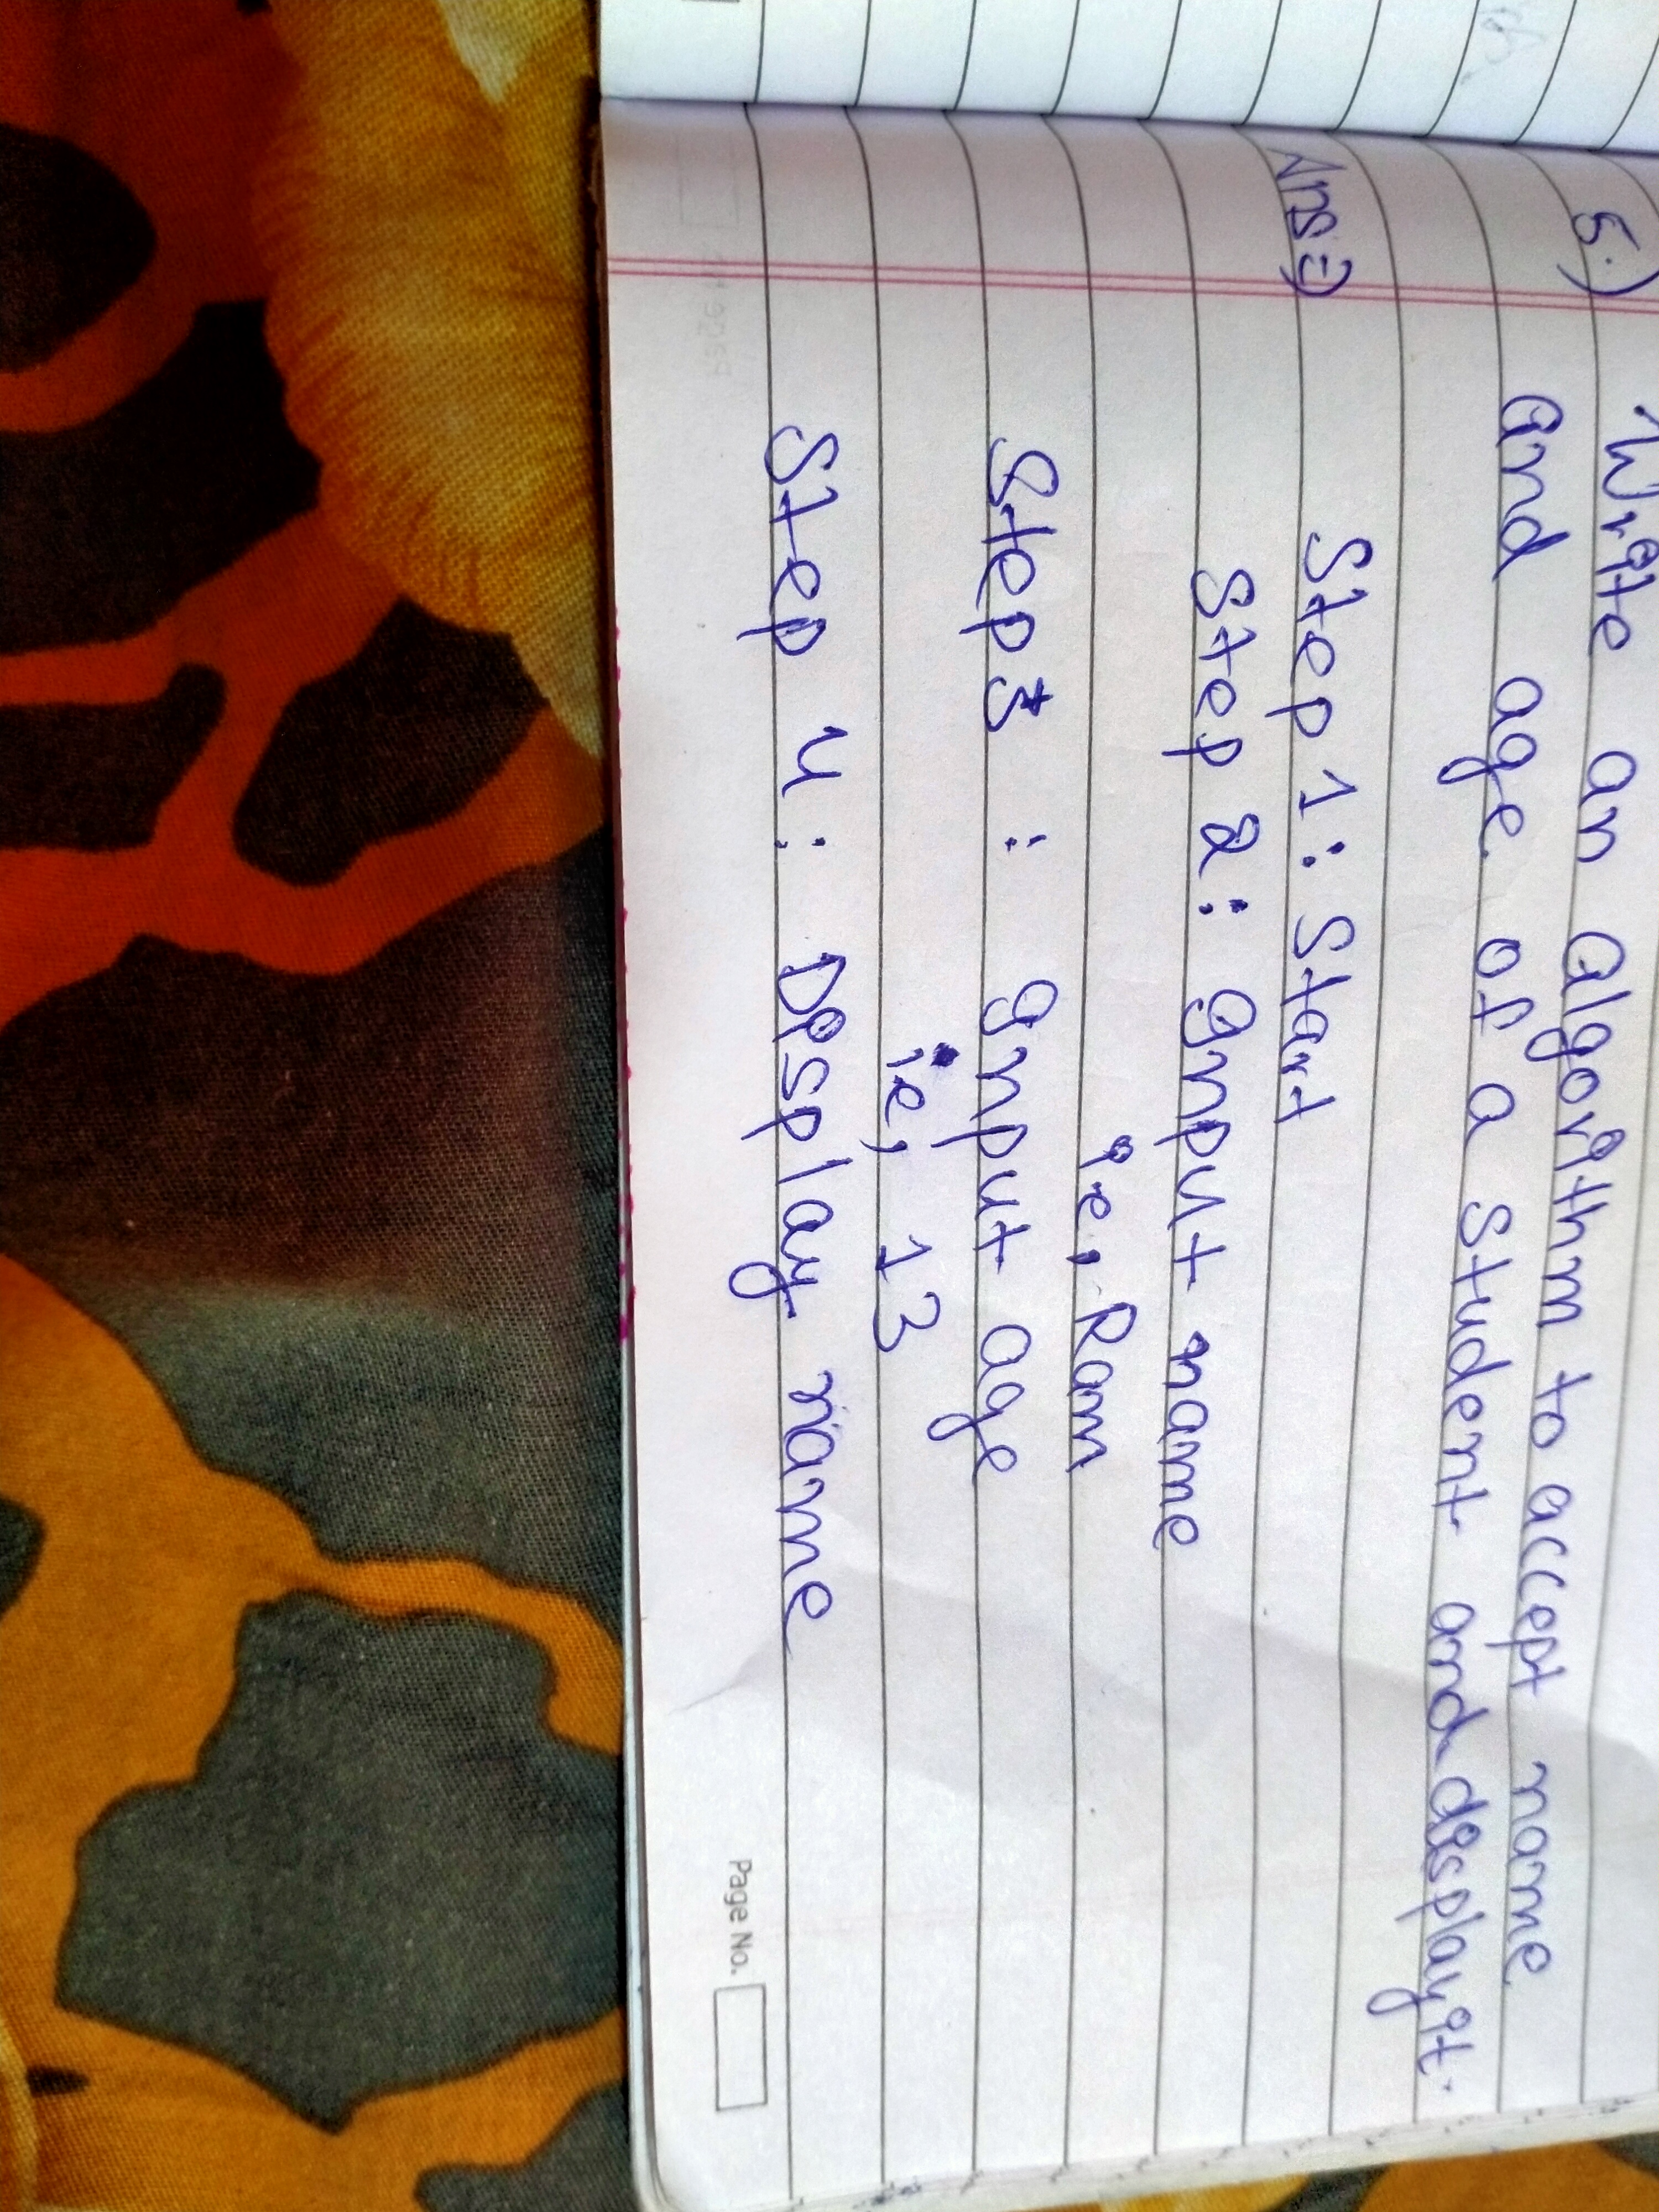 5.) Write an Algorithm to accept name
and age of a student and display it.
Ans⇒ Step 1: Start
Step 2: Input name
ie, Ram
Step 3 : Input age
ie, 13
Step 4 : Display name
Page No.